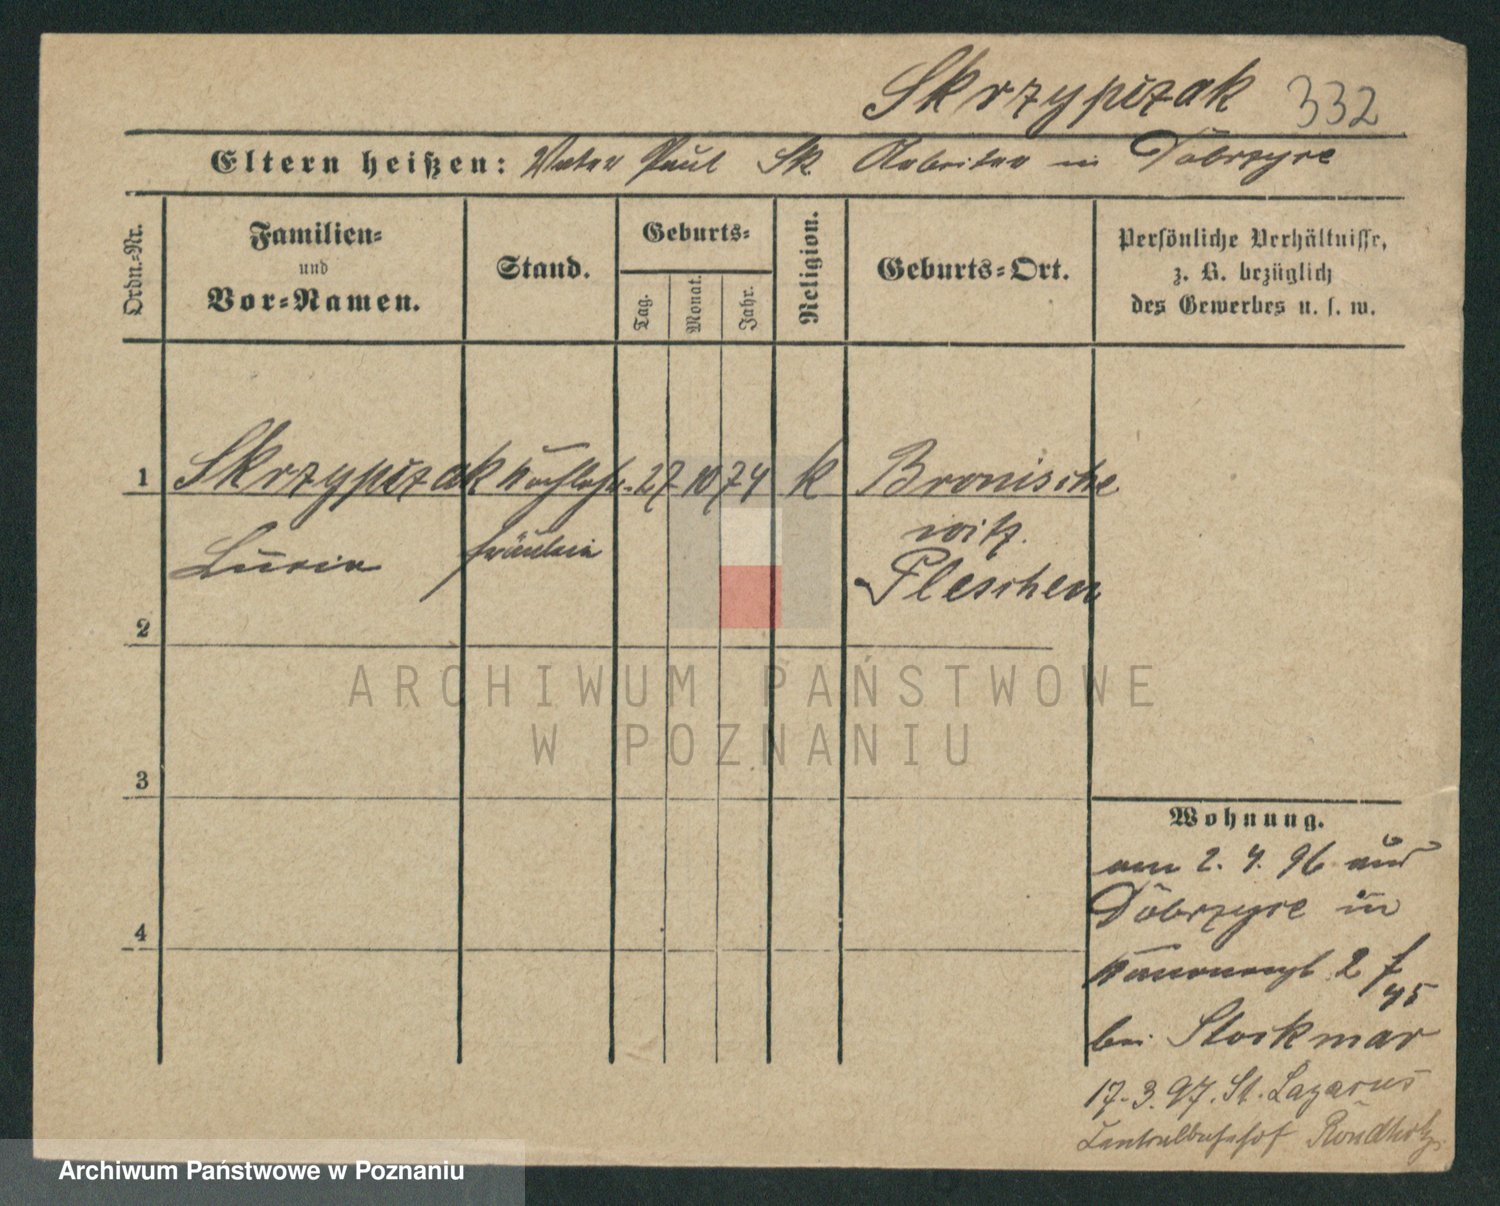 Skrzypczak 332
Eltern heißen: Vater Paul Sk. Arbeiter in Dobrzyce
Ordn.-Nr.
Familien-
und
Vor-Namen.
Stand.
Geburts-
Tag.
Monat.
Jahr.
Religion.
Geburts-Ort.
Persönliche Verhältnisse,
z. B. bezüglich
des Gewerbes u. s. w.
1 Skrzypczak 27 10 74 k Bronische
witz.
Lucia fräulein Pleschen
2
3
4
Wohnung.
am 2. 4. 96 aus
Dobrzyce in
bei Stockmar
17. 3. 97. St. Lazarus
Zentralbahnhof
ARCHIWUM PAŃSTWOWE
W POZNANIU
Archiwum Państwowe w Poznaniu